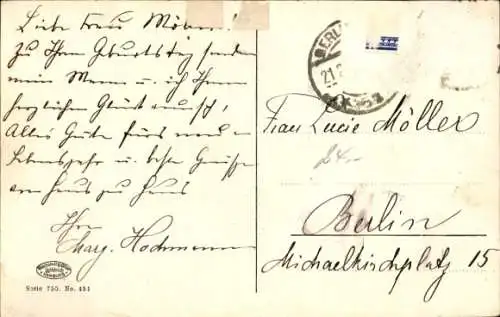 Liebe Frau Möller!
Zu Ihrem Geburtstag senden
mein Mann u. ich Ihnen
herzlichen Glückwunsch!
Alles Gute fürs neue
Lebensjahr u. beste Grüsse
von Haus zu Haus
Ihre
Marg. Hochmann
Serie 755. No. 454
BERLIN
21.
Frau Lucie Möller
24.-
Berlin
Michaelkirchplatz 15